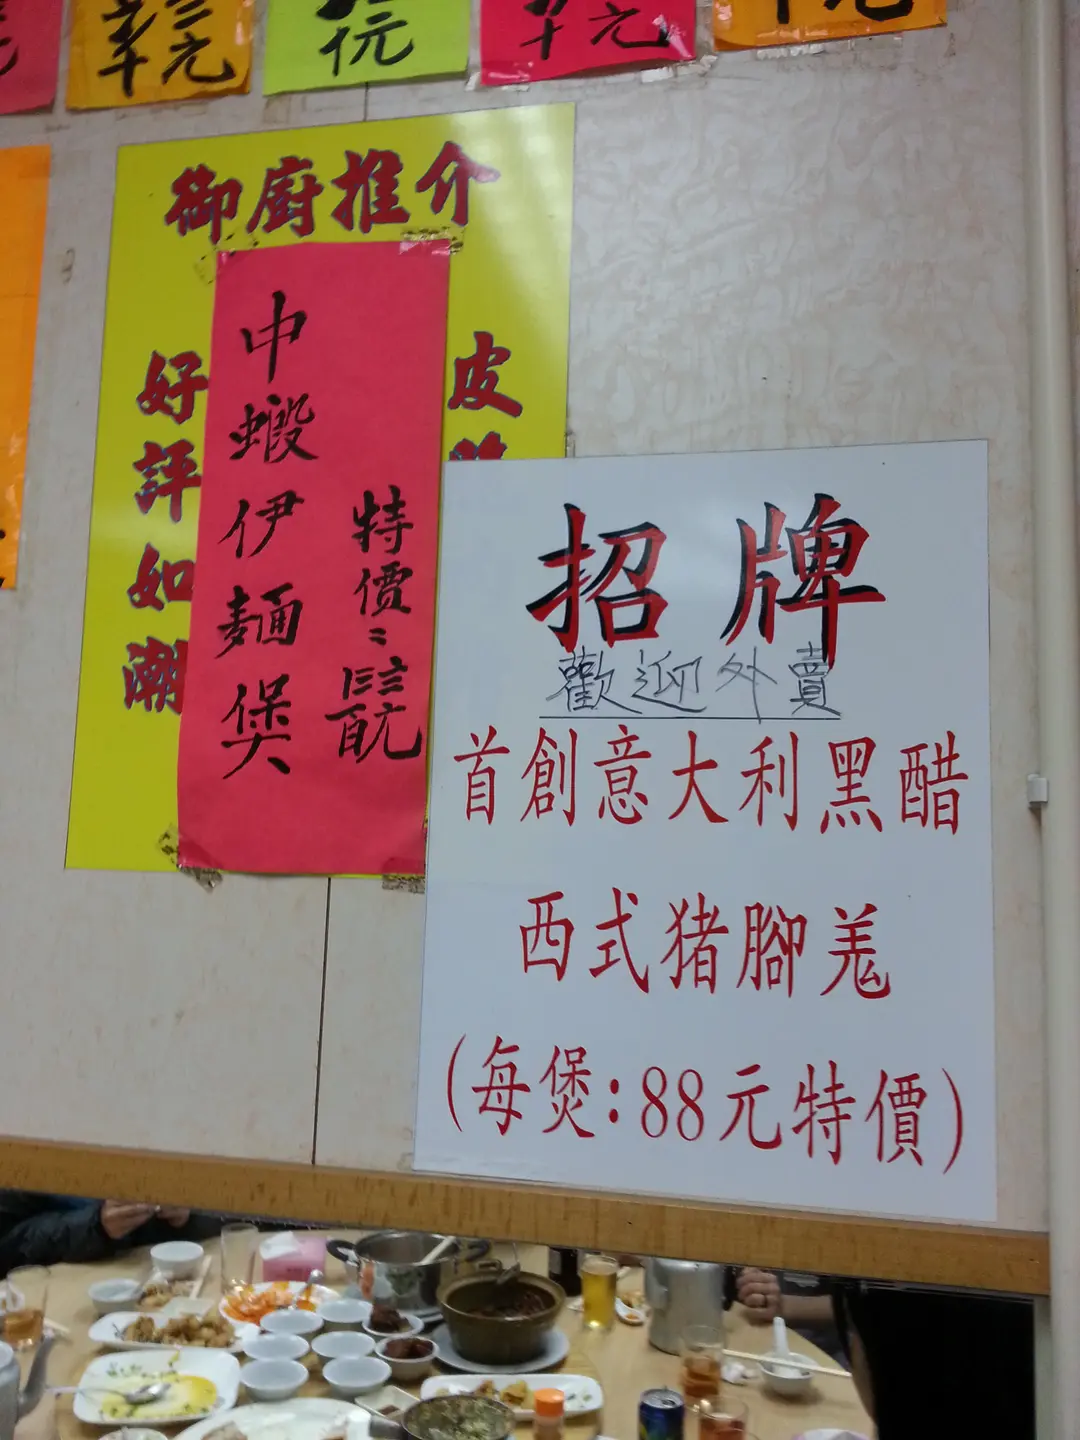 元
元
元
元
御廚推介
皮
特價：
中蝦伊麵煲
好評如潮
招牌
歡迎外賣
首創意大利黑醋
西式猪腳羗
(每煲:88元特價)